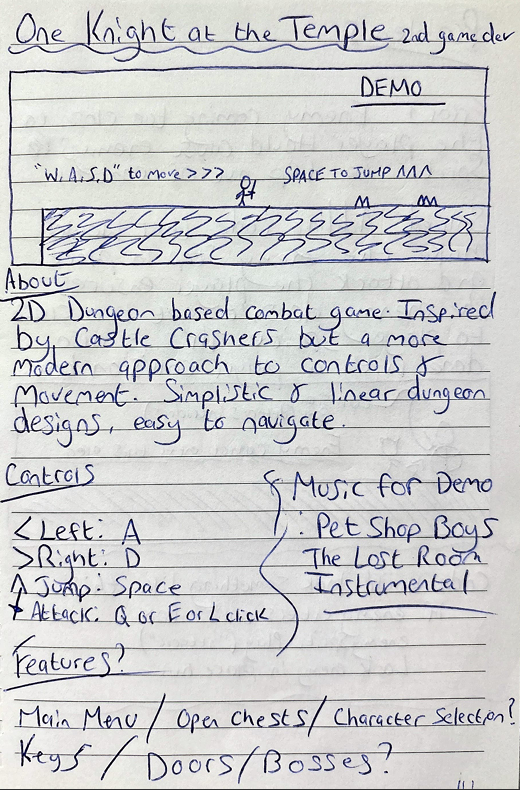 One Knight at the Temple 2nd game dev
DEMO
"W.A.S.D" to move >>> SPACE TO JUMP ^^^
About
2D Dungeon based combat game. Inspired
by Castle Crashers but a more
modern approach to controls &
Movement. Simplistic & linear dungeon
designs, easy to navigate.
Controls
< Left: A
> Right: D
↑ Jump: Space
Attack: Q or E or L click
Music for Demo
: Pet Shop Boys
The Lost Room
Instrumental
Features?
Main Menu / Open Chests / Character Selection?
Keys / Doors / Bosses?